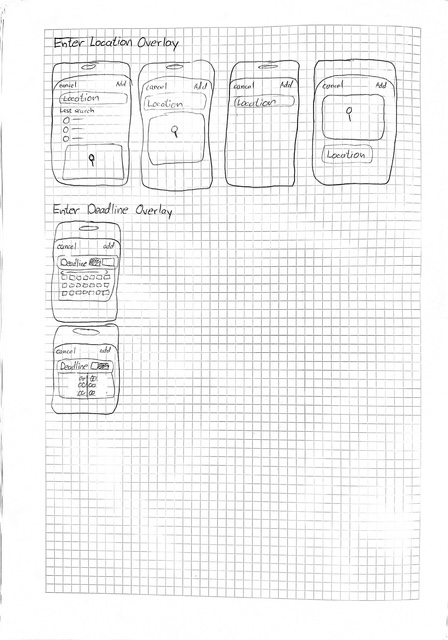 Enter Location Overlay
cancel Add
Location
Last search
cancel Add
Location
cancel Add
Location
cancel Add
Location
Enter Deadline Overlay
cancel add
Deadline
cancel add
Deadline
00 00
00 00
00 00